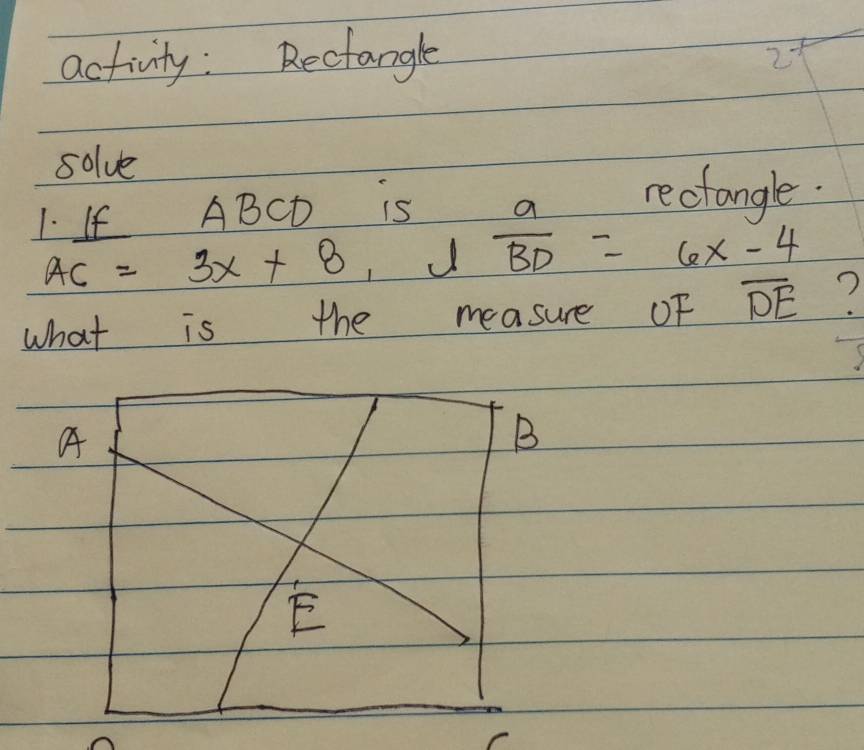 activity: Rectangle
solve
1. If ABCD is a rectangle.
AC = 3x + 8, BD = 6x - 4
what is the measure OF DE ?
A
B
E